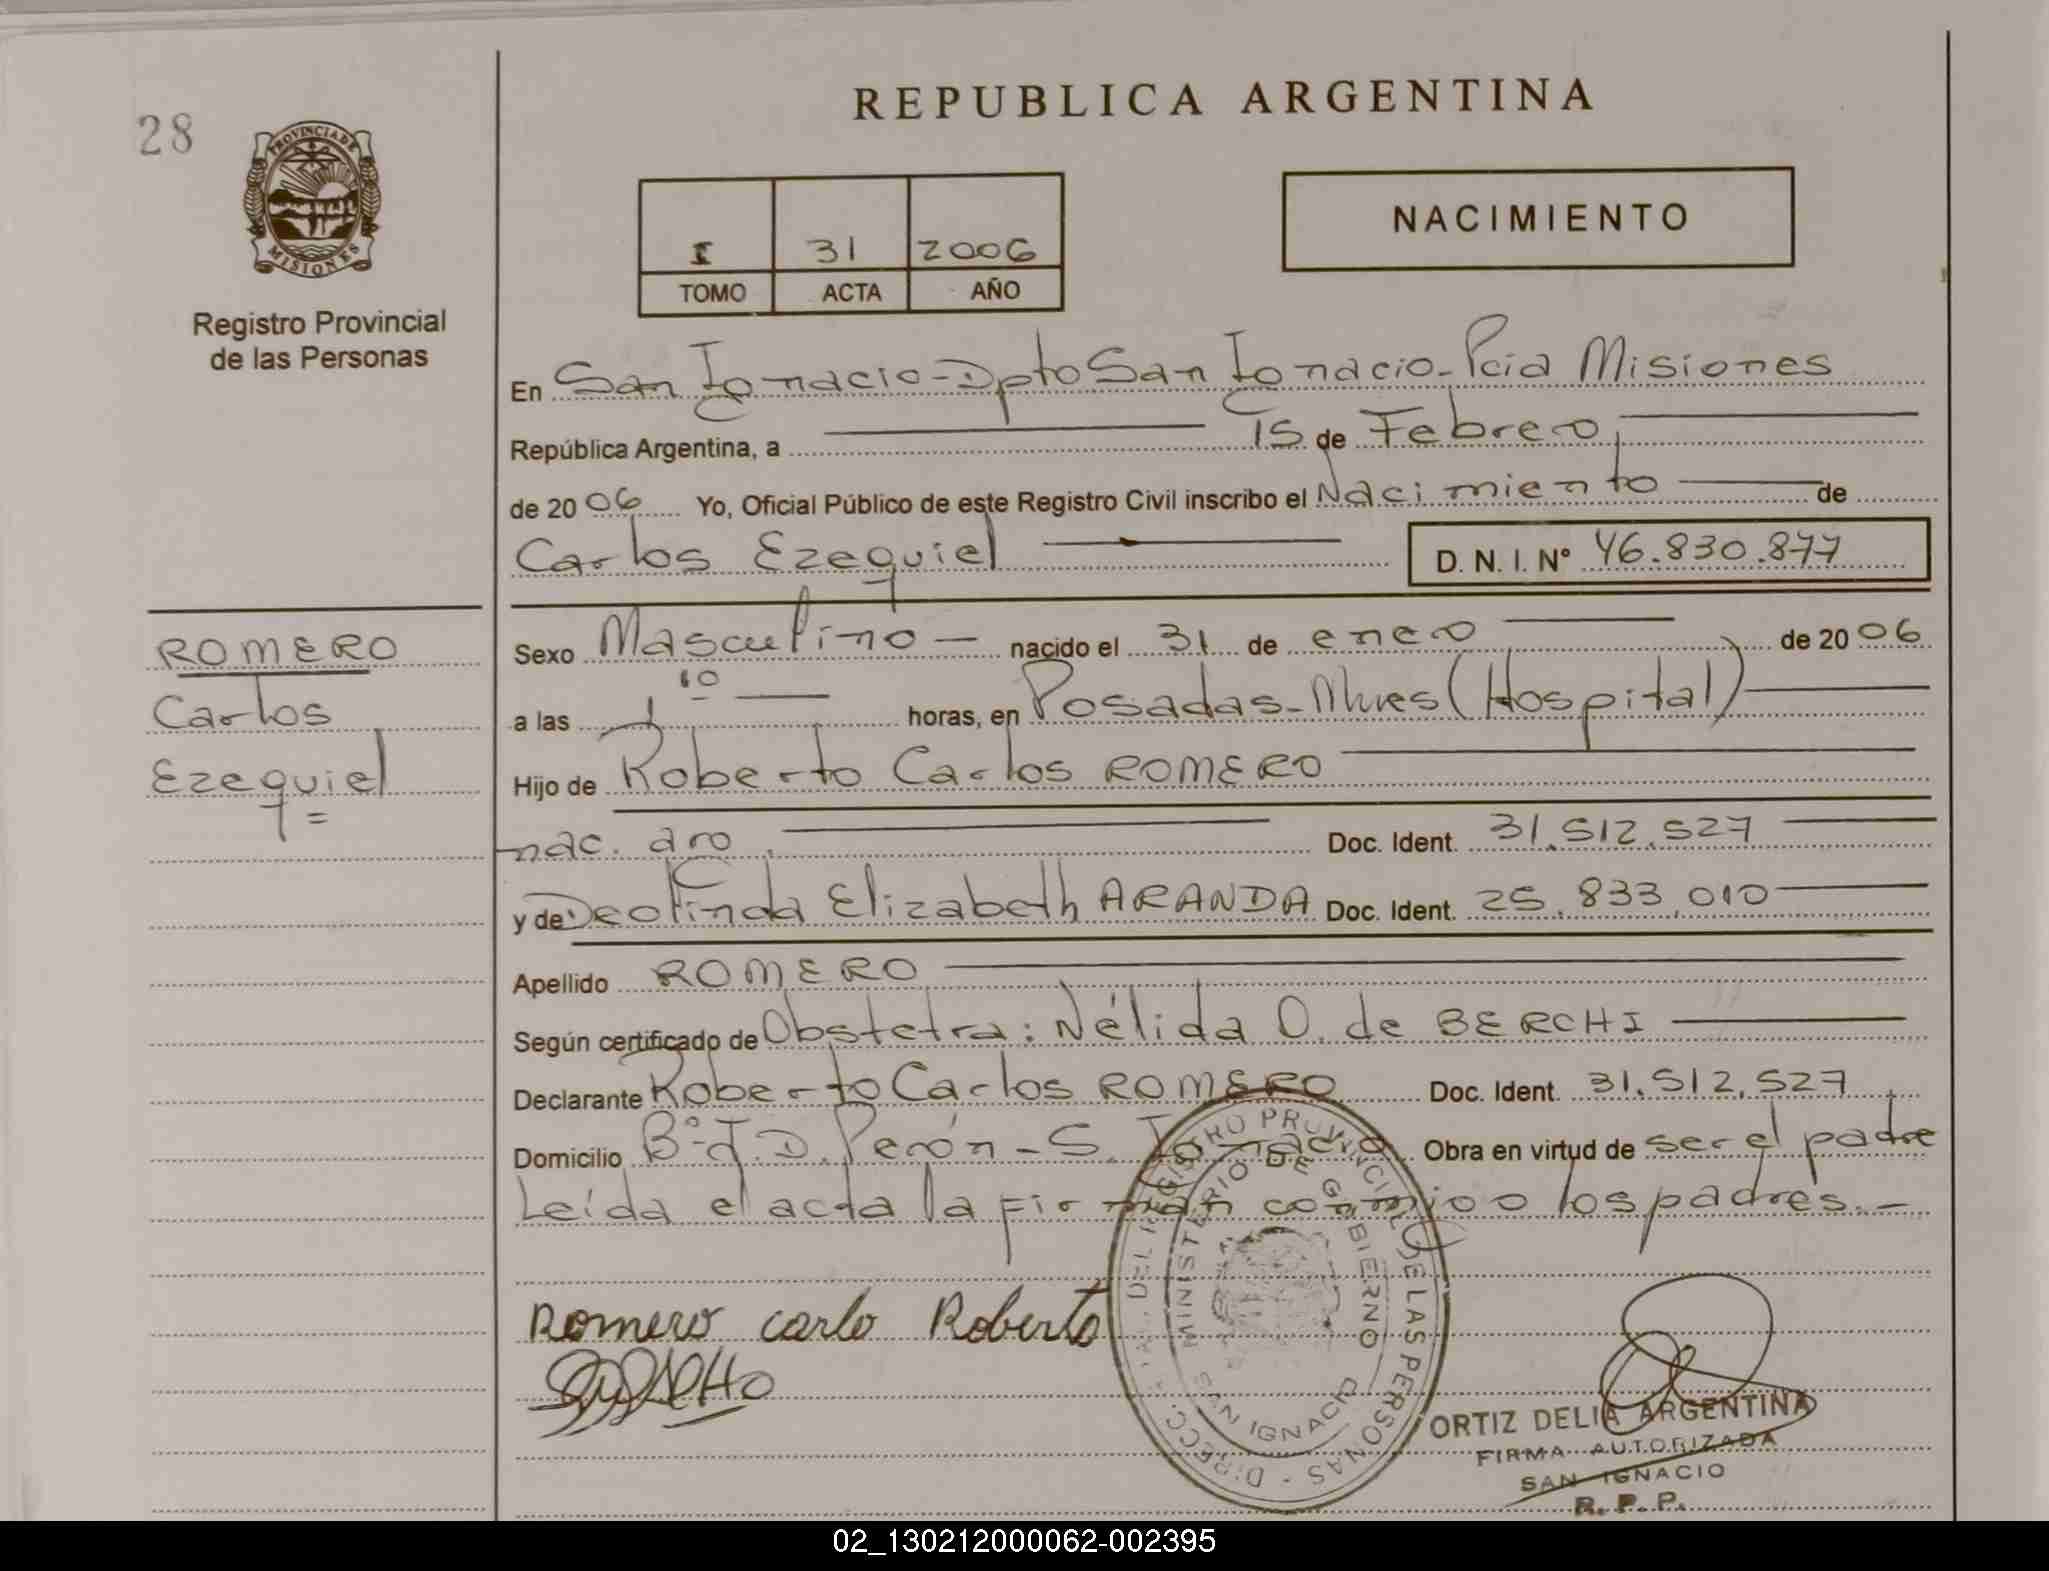 28
PROVINCIA DE
MISIONES
Registro Provincial
de las Personas
REPUBLICA ARGENTINA
I 31 2006
TOMO ACTA AÑO
NACIMIENTO
En San Ignacio - Dpto San Ignacio - Pcia Misiones
República Argentina, a 15 de Febrero
de 2006 Yo, Oficial Público de este Registro Civil inscribo el Nacimiento de
Carlos Ezequiel D. N. I. Nº 46.830.877
ROMERO
Carlos
Ezequiel =
Sexo Masculino - nacido el 31 de enero de 2006
a las 1 10 horas, en Posadas - Mnes (Hospital)
Hijo de Roberto Carlos ROMERO
nac. arg. Doc. Ident. 31.512.527
y de Deolinda Elizabeth ARANDA Doc. Ident. 25.833.010
Apellido ROMERO
Según certificado de Obstetra: Nélida O. de BERCHI
Declarante Roberto Carlos ROMERO Doc. Ident. 31.512.527
Domicilio Bº J. D. Perón - S. Ignacio Obra en virtud de ser el padre
Leída el acta la firman conmigo los padres. -
Romero carlo Roberto
DIRECC. DEL REGISTRO PROVINCIAL DE LAS PERSONAS
MINISTERIO DE GOBIERNO
SAN IGNACIO
ORTIZ DELIA ARGENTINA
FIRMA AUTORIZADA
SAN IGNACIO
R. P. P.
02_130212000062-002395